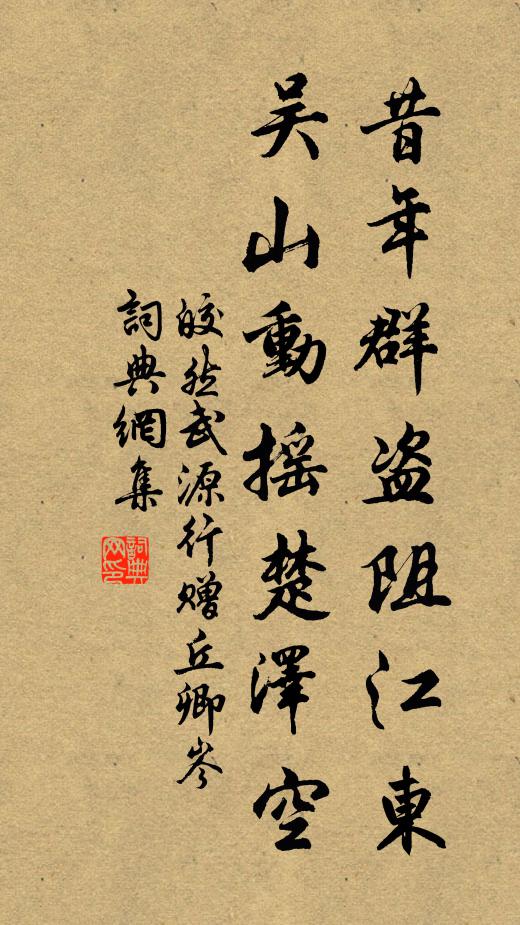 昔年群盗阻江東
吴山動摇楚澤空
皎然武源行赠丘卿岑
詞典網集
詞典網印